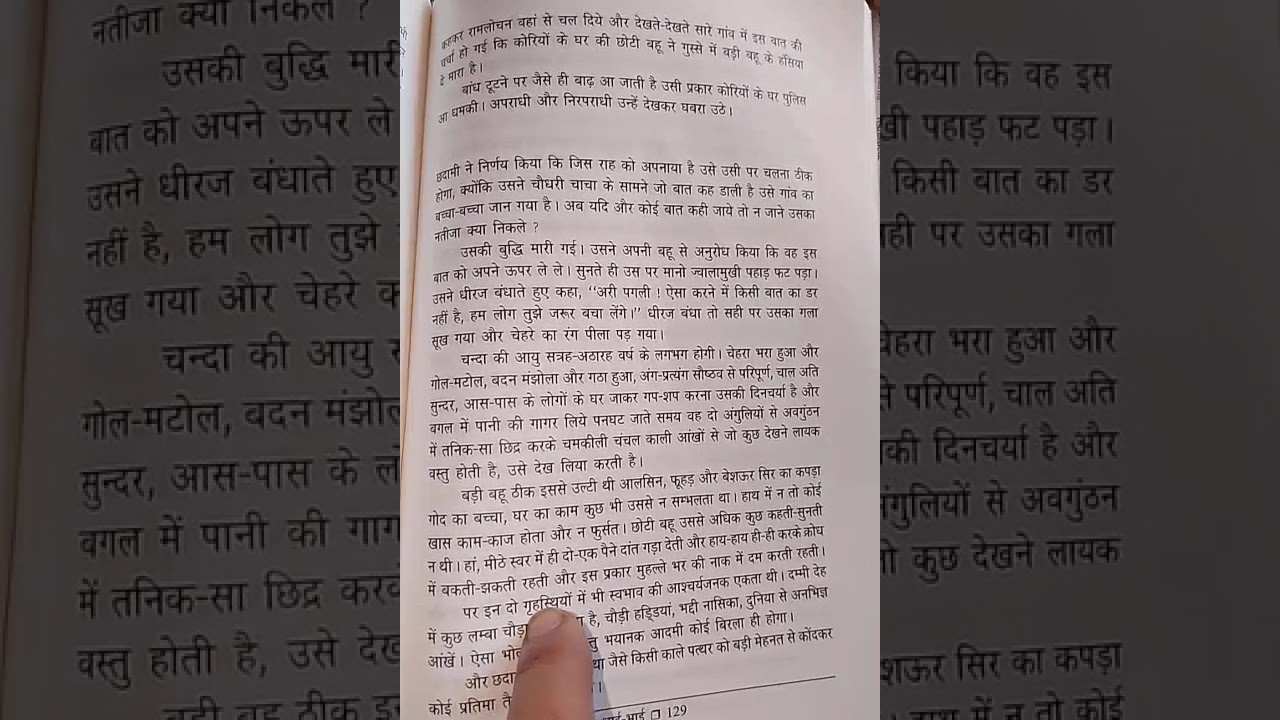 कहकर रामलोचन वहां से चल दिये और देखते-देखते सारे गांव में इस बात की
चर्चा हो गई कि कोरियों के घर की छोटी बहू ने गुस्से में बड़ी बहू के हंसिया
दे मारा है।
बांध टूटने पर जैसे ही बाढ़ आ जाती है उसी प्रकार कोरियों के घर पुलिस
आ धमकी। अपराधी और निरपराधी उन्हें देखकर घबरा उठे।
छदामी ने निर्णय किया कि जिस राह को अपनाया है उसे उसी पर चलना ठीक
होगा, क्योंकि उसने चौधरी चाचा के सामने जो बात कह डाली है उसे गांव का
बच्चा-बच्चा जान गया है। अब यदि और कोई बात कही जाये तो न जाने उसका
नतीजा क्या निकले ?
उसकी बुद्धि मारी गई। उसने अपनी बहू से अनुरोध किया कि वह इस
बात को अपने ऊपर ले ले। सुनते ही उस पर मानो ज्वालामुखी पहाड़ फट पड़ा।
उसने धीरज बंधाते हुए कहा, “अरी पगली ! ऐसा करने में किसी बात का डर
नहीं है, हम लोग तुझे जरूर बचा लेंगे।” धीरज बंधा तो सही पर उसका गला
सूख गया और चेहरे का रंग पीला पड़ गया।
चन्दा की आयु सत्रह-अठारह वर्ष के लगभग होगी। चेहरा भरा हुआ और
गोल-मटोल, बदन मंझोला और गठा हुआ, अंग-प्रत्यंग सौष्ठव से परिपूर्ण, चाल अति
सुन्दर, आस-पास के लोगों के घर जाकर गप-शप करना उसकी दिनचर्या है और
बगल में पानी की गागर लिये पनघट जाते समय वह दो अंगुलियों से अवगुंठन
में तनिक-सा छिद्र करके चमकीली चंचल काली आंखों से जो कुछ देखने लायक
वस्तु होती है, उसे देख लिया करती है।
बड़ी बहू ठीक इससे उल्टी थी आलसिन, फूहड़ और बेशऊर सिर का कपड़ा
गोद का बच्चा, घर का काम कुछ भी उससे न सम्भलता था। हाथ में न तो कोई
खास काम-काज होता और न फुर्सत। छोटी बहू उससे अधिक कुछ कहती-सुनती
न थी। हां, मीठे स्वर में ही दो-एक पैने दांत गड़ा देती और हाय-हाय ही-ही करके क्रोध
में बकती-झकती रहती और इस प्रकार मुहल्ले भर की नाक में दम करती रहती।
पर इन दो गृहस्थियों में भी स्वभाव की आश्चर्यजनक एकता थी। दम्मी देह
में कुछ लम्बा चौड़ा है, चौड़ी हड्डियां, भद्दी नासिका, दुनिया से अनभिज्ञ
आंखें। ऐसा भयानक आदमी कोई बिरला ही होगा।
और छदा जैसे किसी काले पत्थर को बड़ी मेहनत से कोंदकर
कोई प्रतिमा
129